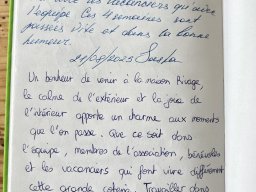 vacanciers qui
l'équipe. Ces 4 semaines sont
passées vite et dans la bonne
humeur.
Un bonheur de venir à la maison Rivage,
le calme de l'extérieur et la joie de
l'intérieur apporte un charme aux moments
que l'on passe. Que ce soit dans
l'équipe, membres de l'association, bénévoles
et les vacanciers qui font vivre
cette grande